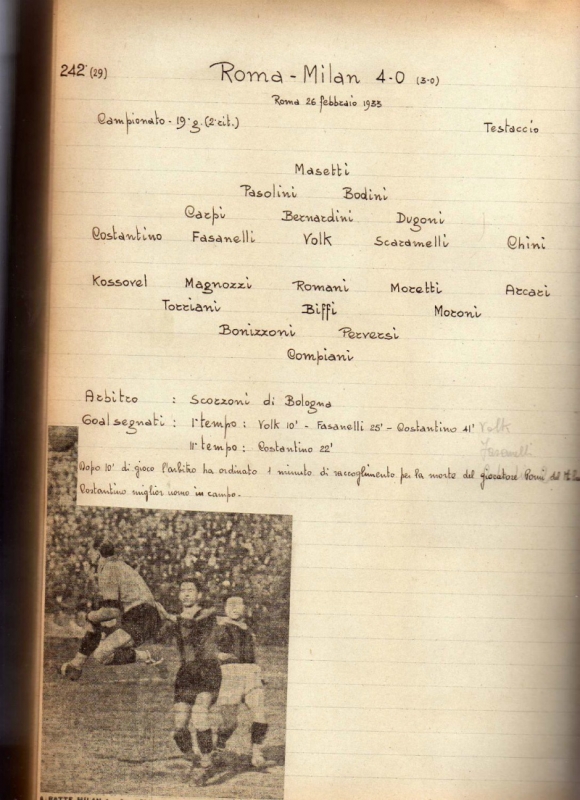 242ª (29)
Roma - Milan 4-0 (3-0)
Roma 26 febbraio 1933
Campionato - 19ª g. (2ª rit.)
Testaccio
Masetti
Pasolini Bodini
Carpi Bernardini Dugoni
Costantino Fasanelli Volk Scaramelli Chini
Kossovel Magnozzi Romani Moretti Arcari
Torriani Biffi Moroni
Bonizzoni Perversi
Compiani
Arbitro : Scorzoni di Bologna
Goal segnati : I° tempo : Volk 10' - Fasanelli 25' - Costantino 41' Volk
II° tempo : Costantino 22' Fasanelli
Dopo 10' di gioco l'arbitro ha ordinato 1 minuto di raccoglimento per la morte del giocatore
Costantino miglior uomo in campo.
BATTE MILAN